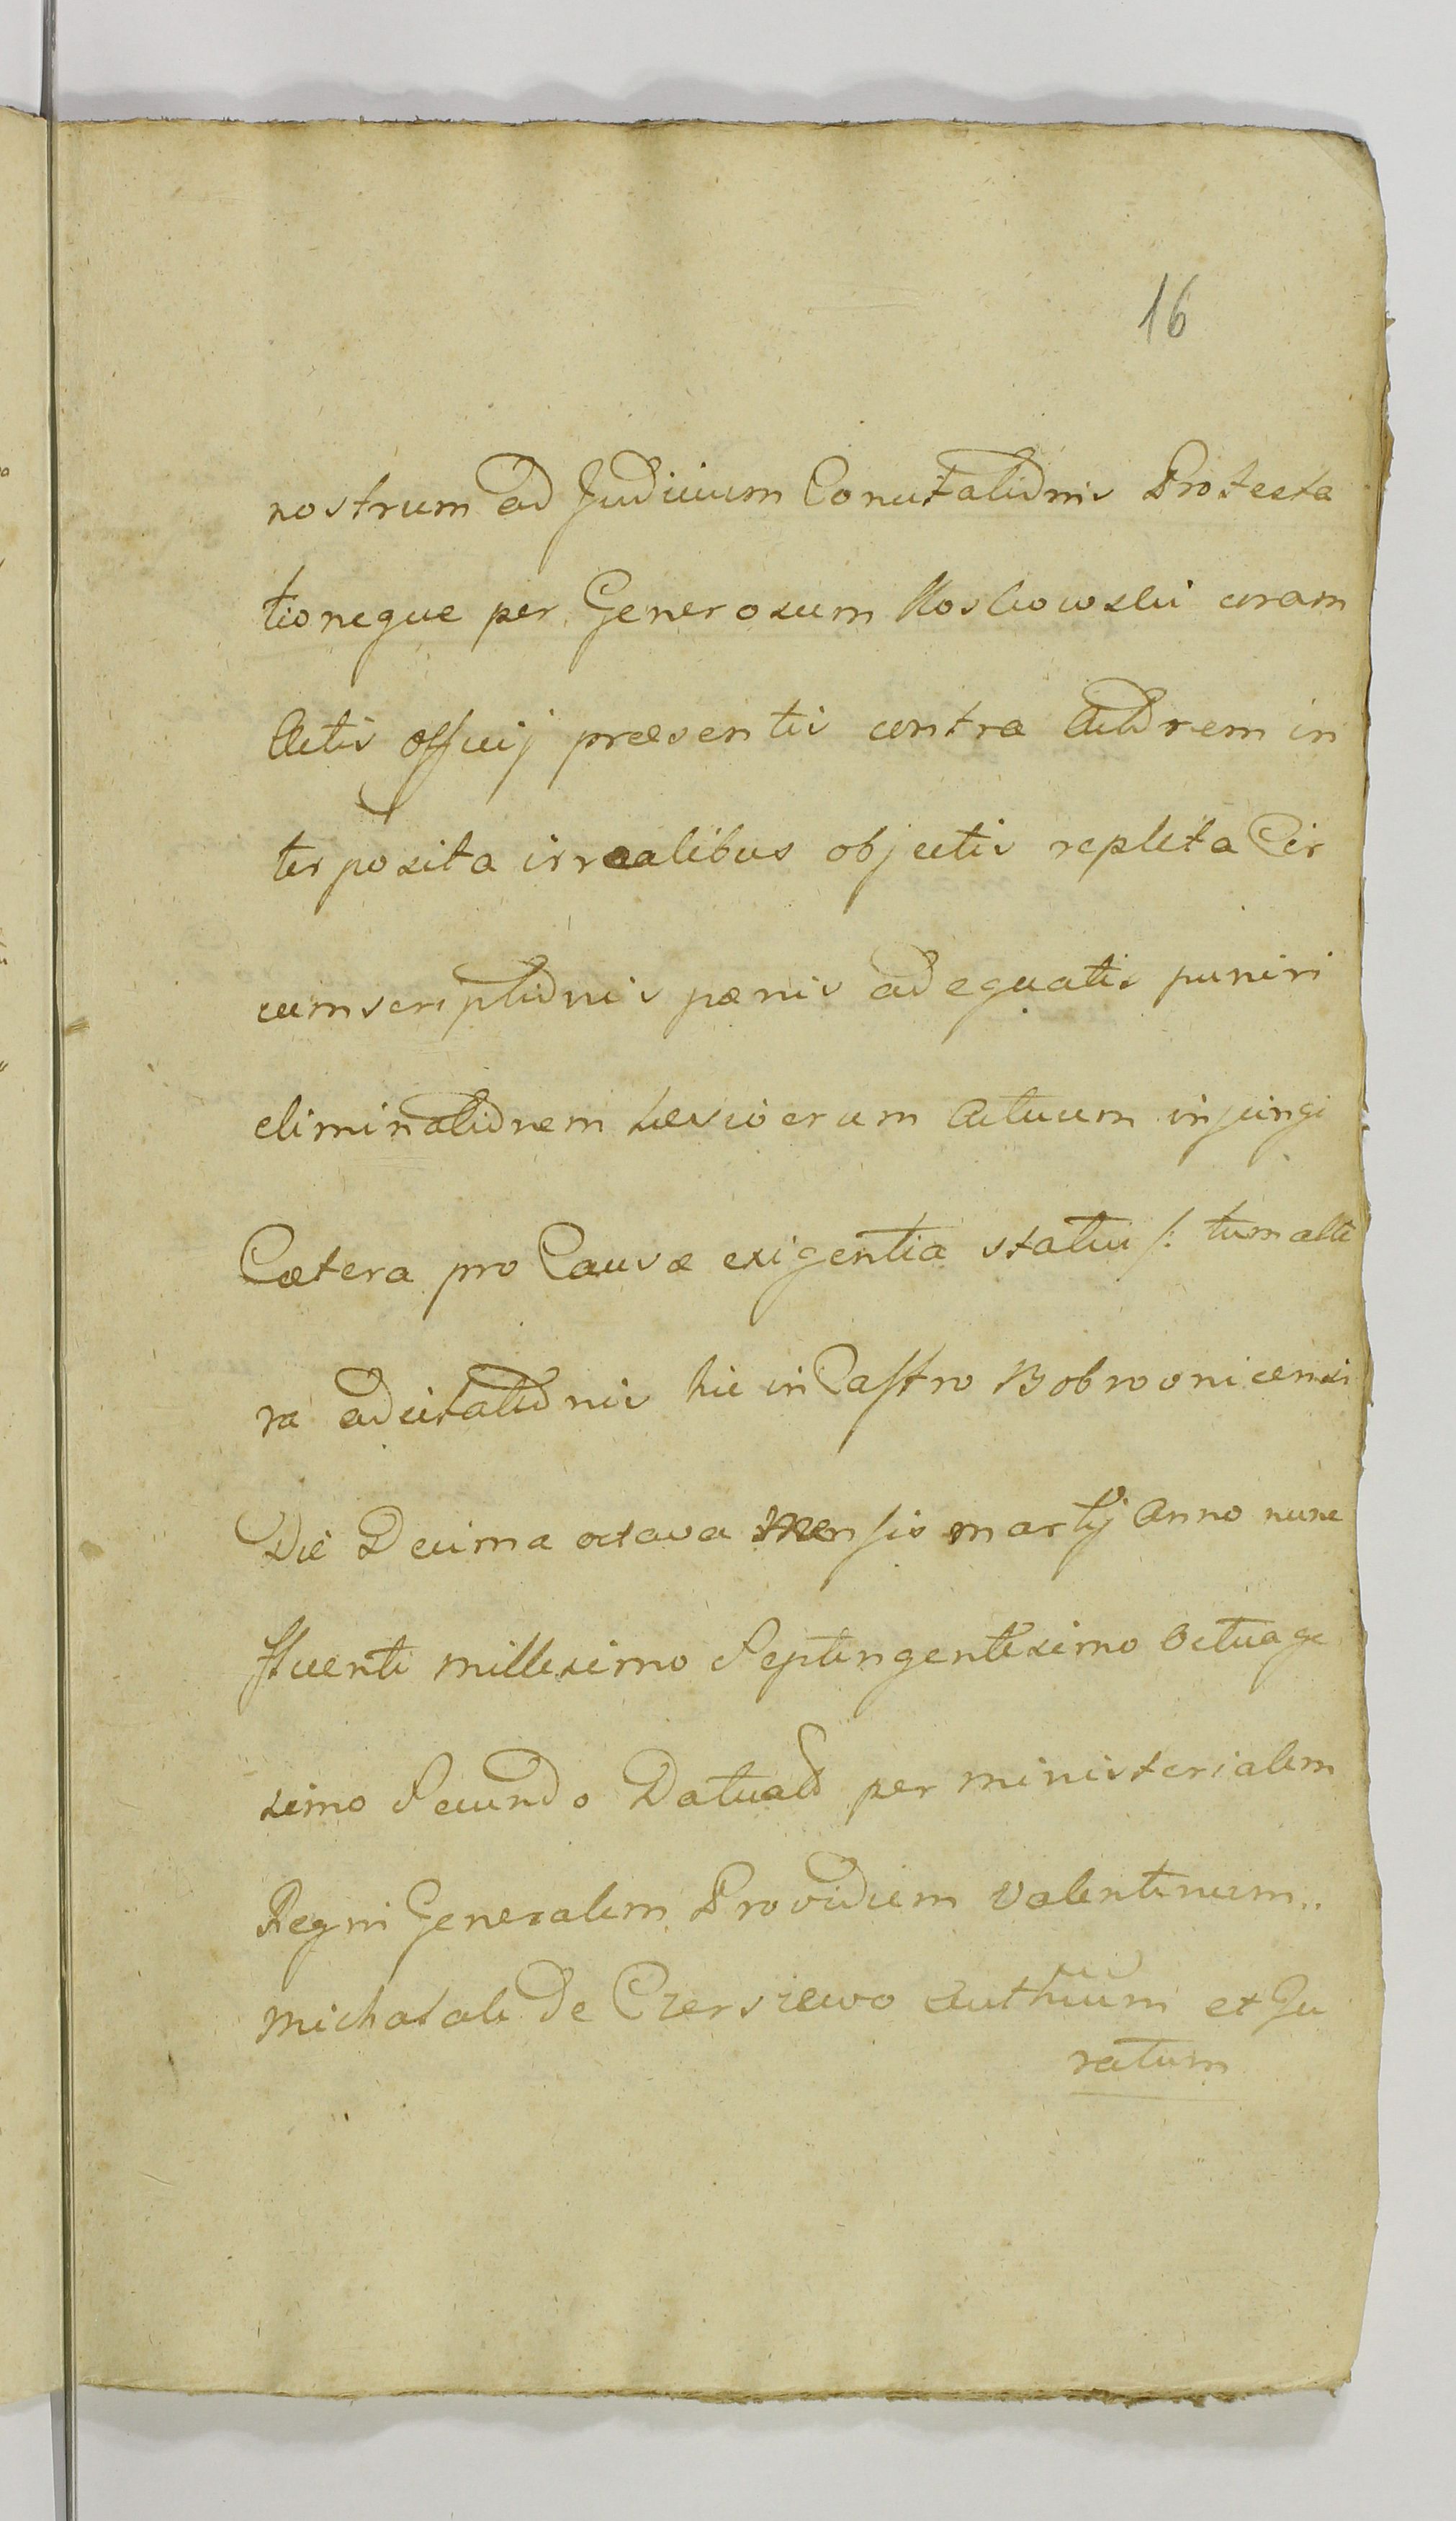 16
nostrum ad Judicium Concitationis Protesta
tioneque per Generosum Koskowski coram
Actis officij præsentis contra Actorem in
terposita irrealibus objectis repleta Cir
cumscriptionis pœnis adequatis puniri
eliminationem ex Actuum injungi
Cætera pro Causæ exigentia statui /: tum alte
ra adcitationis hic in Castro Bobrovnicensi
Die Decima octava Mensis martij Anno nunc
ffluenti millesimo Septingentesimo Octuage
simo Secundo Datuatd per ministerialem
Regni Generalem Providum Valentinum
Michatale de Czerszewo authcum et Ju
ratum